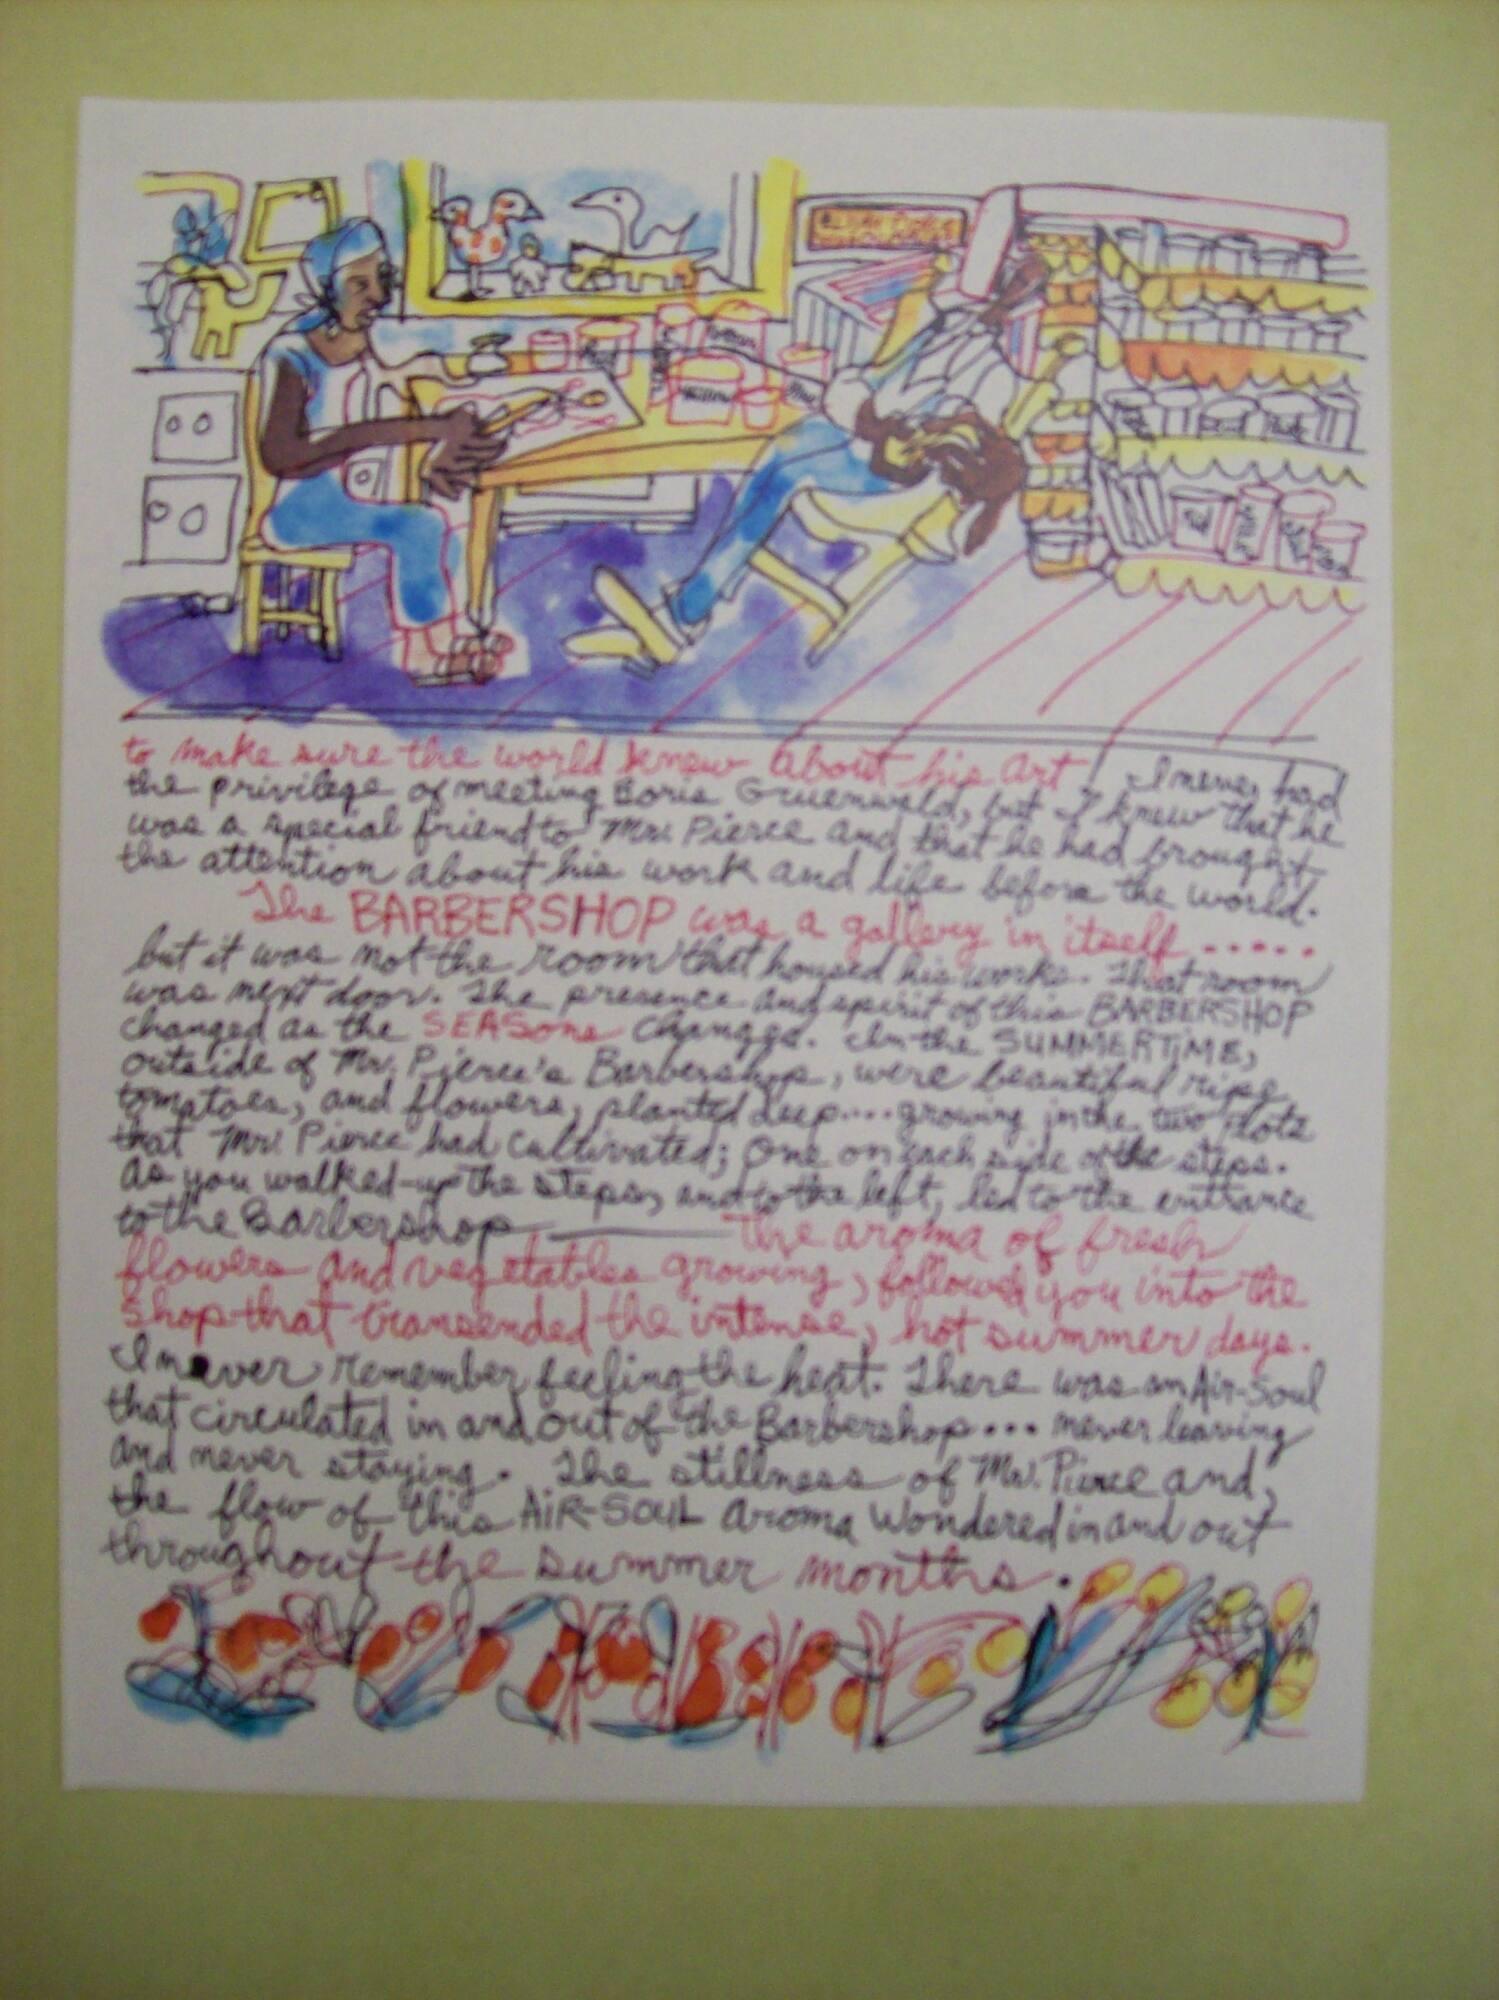 to make sure the world knew About his Art! I never had
the privilege of meeting Boris Gruenwald, but I knew that he
was a special friend to Mr. Pierce and that he had brought
the attention about his work and life before the world.
The BARBERSHOP was a gallery in itself .....
but it was not the room that housed his works. That room
was next door. The presence and spirit of this BARBERSHOP
changed as the SEASons changes. In the SUMMERTiME,
outside of Mr. Pierce's Barbershop, were beautiful ripe
tomatoes, and flowers, planted deep.... growing in the two plots
that Mr. Pierce had cultivated; One on each side of the steps.
As you walked-up the steps, and to the left, led to the entrance
to the Barbershop —— The aroma of fresh
flowers and vegetables growing, followed you into the
shop that transended the intense, hot summer days.
I never remember feeling the heat. There was an Air-Soul
that circulated in and out of the Barbershop... never leaving
and never staying. The stillness of Mr. Pierce and,
the flow of this AiR-SOUL Aroma Wondered in and out
throughout the summer months.